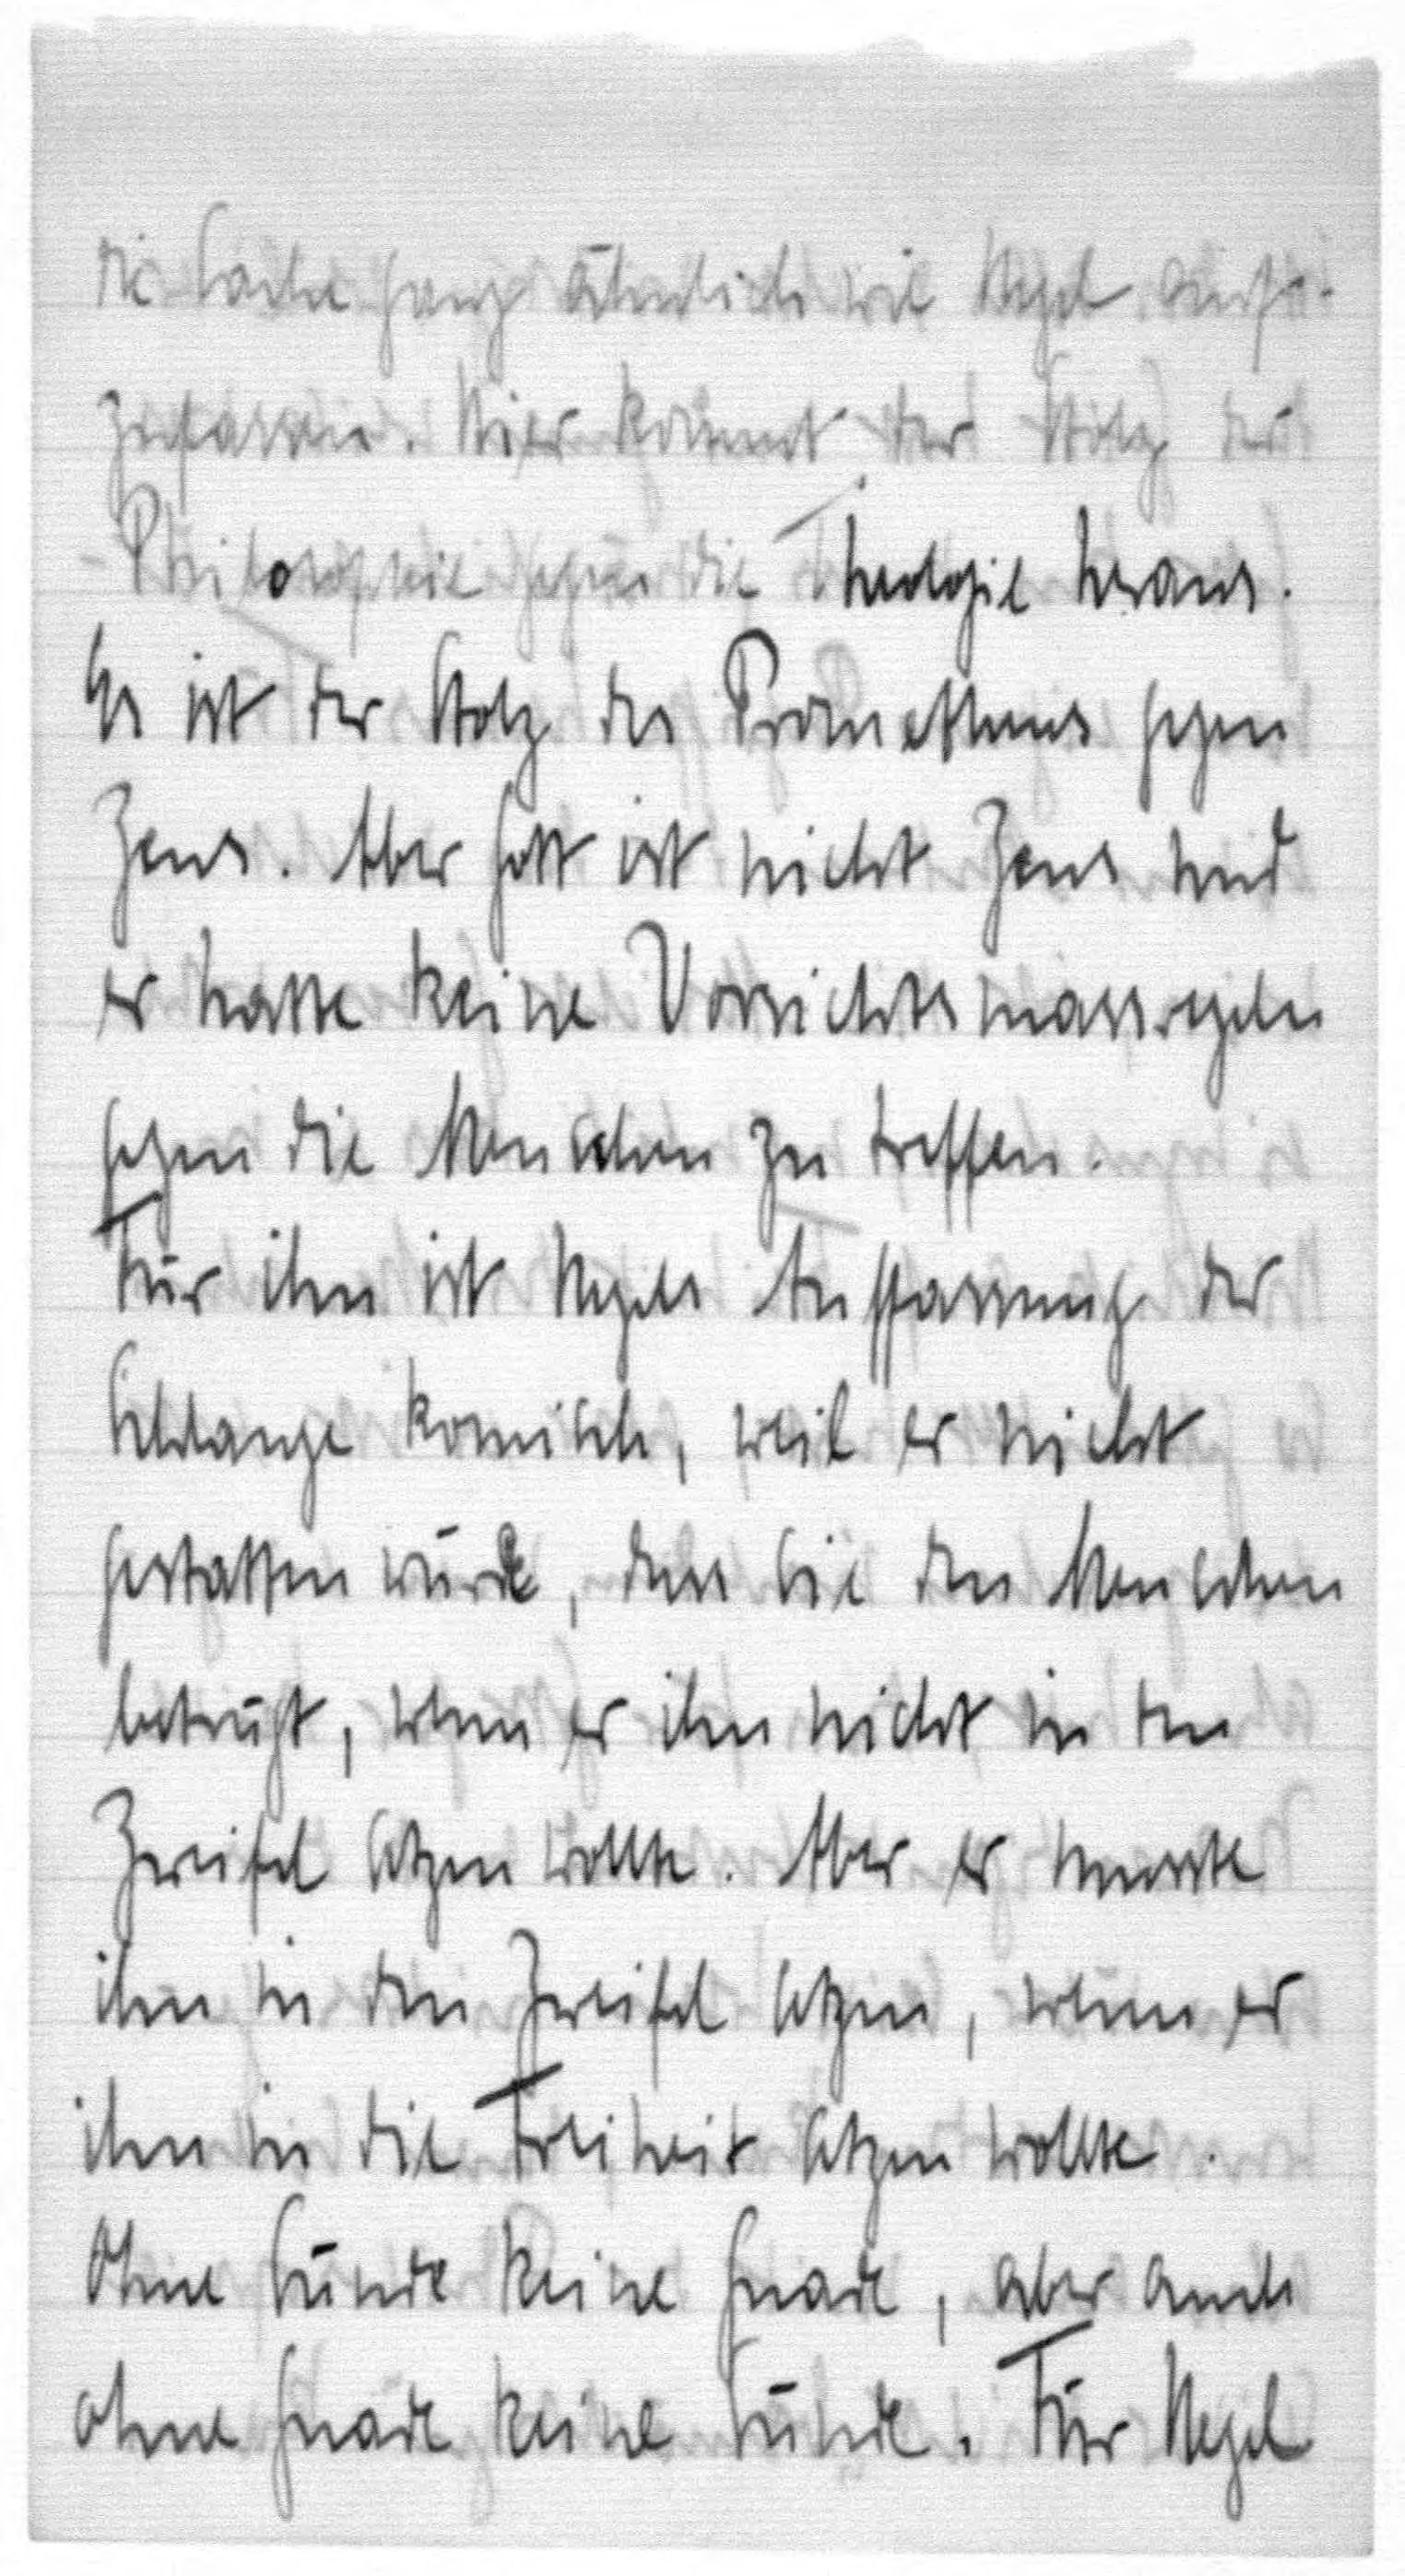 die Sache ganz ähnlich wie Hegel aufzu-
zufassen. Hier kommt der Stolz der
Philosophie gegen die Theologie heraus.
Es ist der Stolz des Prometheus gegen
Zeus. Aber Gott ist nicht Zeus und
er hatte keine Vorsichtsmassregeln
gegen die Menschen zu treffen.
Für ihn ist Hegels Auffassung der
Schlange komisch, weil er nicht
gestatten würde, dass sie den Menschen
betrügt, wenn er ihn nicht in den
Zweifel setzen wollte. Aber er musste
ihn in den Zweifel setzen, wenn er
ihn in die Freiheit setzen wollte.
Ohne Sünde keine Gnade, aber auch
ohne Gnade keine Sünde. Für Hegel